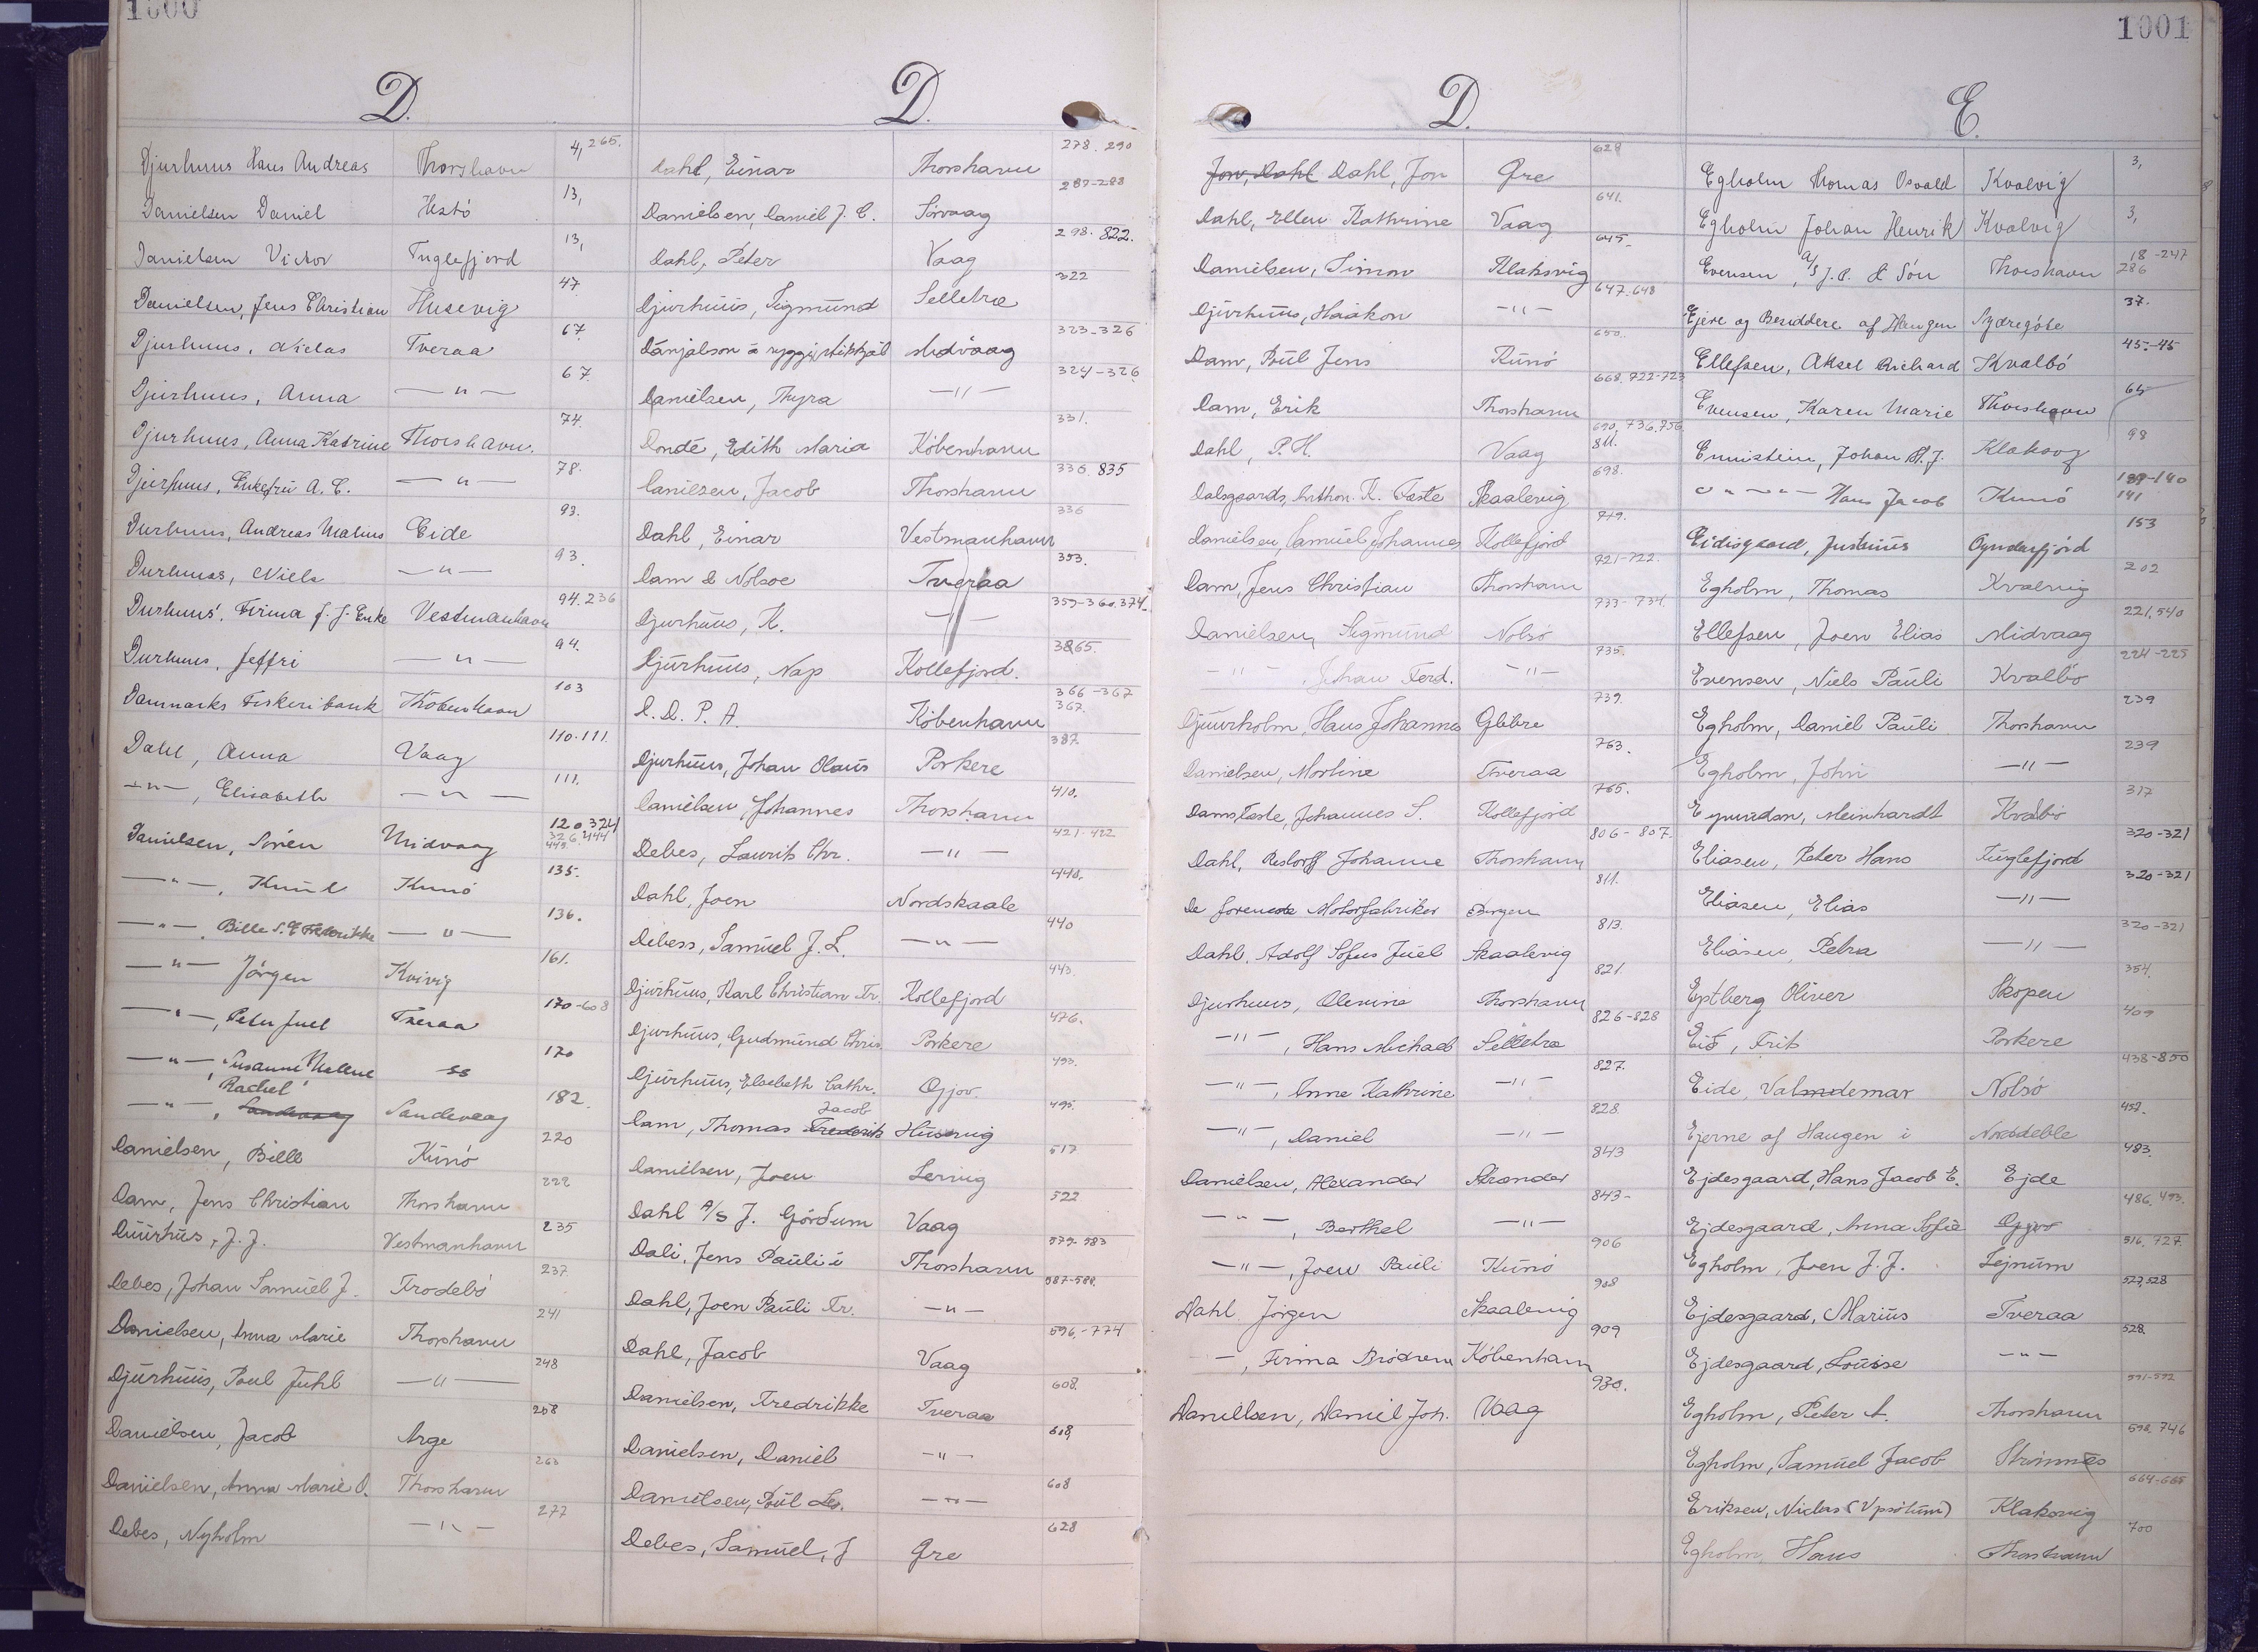 1000
D.
Djurhuus Hans Andreas Thorshavn 4, 265.
Danielsen Daniel Hestö 13,
Danielsen Victor Fuglefjord 13,
Danielsen, Jens Christian Husevig 47
Djurhuus, Niclas Tveraa 67.
Djurhuus, Anna —"— 67.
Djurhuus, Anna Katrine Thorshavn. 74.
Djurhuus, Enkefru A. C. —"— 78.
Durhuus, Andreas Malius Eide 93.
Durhuus, Niels —"— 93.
Durhuus', Firma J. J. Enke Vestmanhavn 94. 236
Durhuus, Jeffri —"— 94.
Danmarks Fiskeribank Köbenhavn 103
Dahl, Anna Vaag 110-111.
—"—, Elisabeth —"— 111.
Danielsen, Sören Midvaag 120, 324 326, 444 445.
—"—, Knud Kunö 135.
—"—, Bille S. E Frederikke —"— 136.
—"— Jörgen Kvivig 161.
—"—, Peter Juel Tveraa 170-608
—"—, Susanne Helene ss 170
—"—, Rachel Sandevaag Sandevaag 182.
Danielsen, Bille Kunö 220
Dam, Jens Christian Thorshavn 222
Duurhus, J. J. Vestmanhavn 235
Debes, Johan Samuel J. Frodebö 237
Danielsen, Anna Marie Thorshavn 241
Djurhuus, Poul Juhl —"— 248
Danielsen, Jacob Arge 258
Danielsen, Anna Marie O. Thorshavn 263
Debes, Nyholm —"— 277
D.
Dahl, Einar Thorshavn 278. 290
Danielsen, Daniel J. C. Sörvaag 287-288
Dahl, Peter Vaag 298. 822.
Djurhuus, Sigmund Selletræ 322
Dánjalson á ryggi, Mikkjál Midvaag 323-326
Danielsen, Thyra —"— 324-326
Dondé, Edith Maria Köbenhavn 331.
Danielsen, Jacob Thorshavn 336 835
Dahl, Einar Vestmanhavn 336
Dam & Nolsoe Tveraa 353.
Djurhuus, K. —"— 359-360. 374.
Djurhuus, Nap Kollefjord. 365.
D. D. P. A. Köbenhavn 366-367 367.
Djurhuus, Johan Olaus Porkere 387.
Danielsen, Johannes Thorshavn 410.
Debes, Laurits Chr. —"— 421-422
Dahl, Joen Nordskaale 440.
Debess, Samuel J. L. —"— 440
Djurhuus, Karl Christian Fr. Kollefjord 443.
Djurhuus, Gudmund Chris. Porkere 476.
Djurhuus, Elsebeth Cathr. Gjov. 493.
Dam, Thomas Frederik Jacob Husevig 495.
Danielsen, Joen Lervig 517
Dahl A/S J. Gördum Vaag 522
Dali, Jens Pauli i Thorshavn 579-583
Dahl, Joen Pauli Fr. —"— 587-588.
Dahl, Jacob Vaag 596.-774
Danielsen, Fredrikke Tveraa 608.
Danielsen, Daniel —"— 608
Danielsen, Poul Ls. —"— 608
Debes, Samuel, J Gre 628
1001
D.
Jon, Dahl Dahl, Jon Gre 628
Dahl, Ellen Kathrine Vaag 641.
Danielsen, Simon Klaksvig 645-
Djurhuus, Haakon —"— 647-648
Dam, Poul Jens Kunö 650.
Dam, Erik Thorshavn 668. 722-723
Dahl, P. H. Vaag 690, 736, 756. 811.
Dalsgaards, Anthon. K. Fæste Skaalevig 698.
Danielsen, Samuel Johannes Kollefjord 719.
Dam, Jens Christian Thorshavn 721-722.
Danielsen, Sigmund Nolsö 733-734.
—"— Johan Ferd. —"— 735.
Djuurholm, Hans Johannes Glibre 739.
Danielsen, Morline Tveraa 763.
Dams Fæste, Johannes S. Kollefjord 765.
Dahl, Restorff Johanne Thorshavn 806-807.
De forenede Motorfabriker Bergen 811.
Dahl, Adolf Sofus Juel Skaalevig 813.
Djurhuus, Olevine Thorshavn 821.
—"—, Hans Michael Selletræ 826-828
—"—, Anne Kathrine —"— 827.
—"—, Daniel —"— 828
Danielsen, Alexander Strænder 843
—"—, Berthel —"— 843-
—"—, Joen Pauli Kunö 906
Dahl Jörgen Skaalevig 908
—, Firma Brödrene Köbenhavn 909
Danielsen, Daniel Joh. Vaag 930.
E.
Egholm Thomas Osvald Kvalvig 3,
Egholm Johan Henrik Kvalvig 3,
Evensen, A/S J. P. & Sön Thorshavn 18-247 286
Ejere og Besiddere af Haugen Sydregöte 37.
Ellefsen, Aksel Richard Kvalbö 45-45
Evensen, Karen Marie Thorshavn 65
Ennistein, Johan H. J. Klaksvig 98
—"—"— Hans Jacob Kunö 139-140 141
Eidisgaard, Justinus Oyndarfjörd 153
Egholm, Thomas Kvalvig 202
Ellefsen, Joen Elias Midvaag 221, 540
Evensen, Niels Pauli Kvalbö 224-225
Egholm, Daniel Pauli Thorshavn 239
Egholm, John —"— 239
Eyvindson, Meinhardt Kvalbö 317
Eliasen, Peter Hans Fuglefjord 320-321
Eliasen, Elias —"— 320-321
Eliasen, Petra —"— 320-321
Eystberg Oliver Skopen 354.
Eid, Frits Porkere 409
Eide, Valmdemar Nolsö 438-850
Ejerne af Haugen i Norddeble 457.
Ejdesgaard, Hans Jacob E. Ejde 483.
Ejdesgaard, Anna Sofie Gjov 486, 493.
Egholm, Joen J. J. Lejnum 516, 727.
Ejdesgaard, Marius Tveraa 527, 528
Ejdesgaard, Louise —"— 528.
Egholm, Peter A. Thorshavn 591-592
Egholm, Samuel Jacob Strömnæs 598. 746
Eriksen, Niclas (Ypsilum) Klaksvig 664-665
Egholm, Hans Thorshavn 700